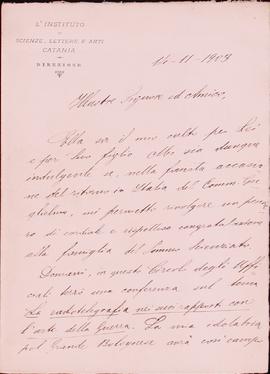 L'ISTITUTO
DI
SCIENZE, LETTERE E ARTI
CATANIA
DIREZIONE
14-11-1903
Illustre Signore ed Amico,
Ella sa il mio culto per Lei
e per suo figlio
indulgente se, nella fausta occasio
ne del ritorno in Italia del Comm. Gu
glielmo, mi permetto rivolgere un pensie
ro di cordiale e rispettosa congratulazione
alla famiglia del Sommo Scienziato.
Domani, in questo Circolo degli Uffi
ciali terrò una conferenza sul tema
La radiotelegrafia nei suoi rapporti con
l'arte della Guerra. La mia idolatria
pel Grande Bolognese avrà così campo